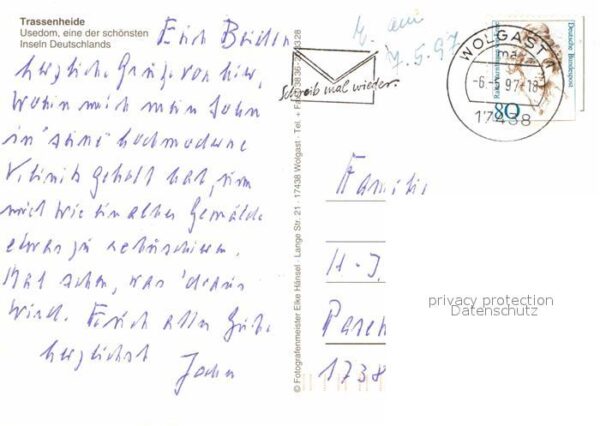 Trassenheide
Usedom, eine der schönsten
Inseln Deutschlands
Euch Beiden
herzliche Grüße von hier,
wohin mich mein Sohn
in seine hochmoderne
Klinik geholt hat, um
mich wie ein altes Gemälde
etwas zu
Mal sehen, was 'draus
wird. Euch alles Gute
herzlichst
© Fotografenmeister Elke Hänsel · Lange Str. 21 · 17438 Wolgast · Tel. + Fax
Schreib mal wieder.
E. am
7.5.97
WOLGAST 1
ma
-6.-5.97-18
17438
Deutsche Bundespost
80
Familie
H-J
Pasew
1738
privacy protection
Datenschutz